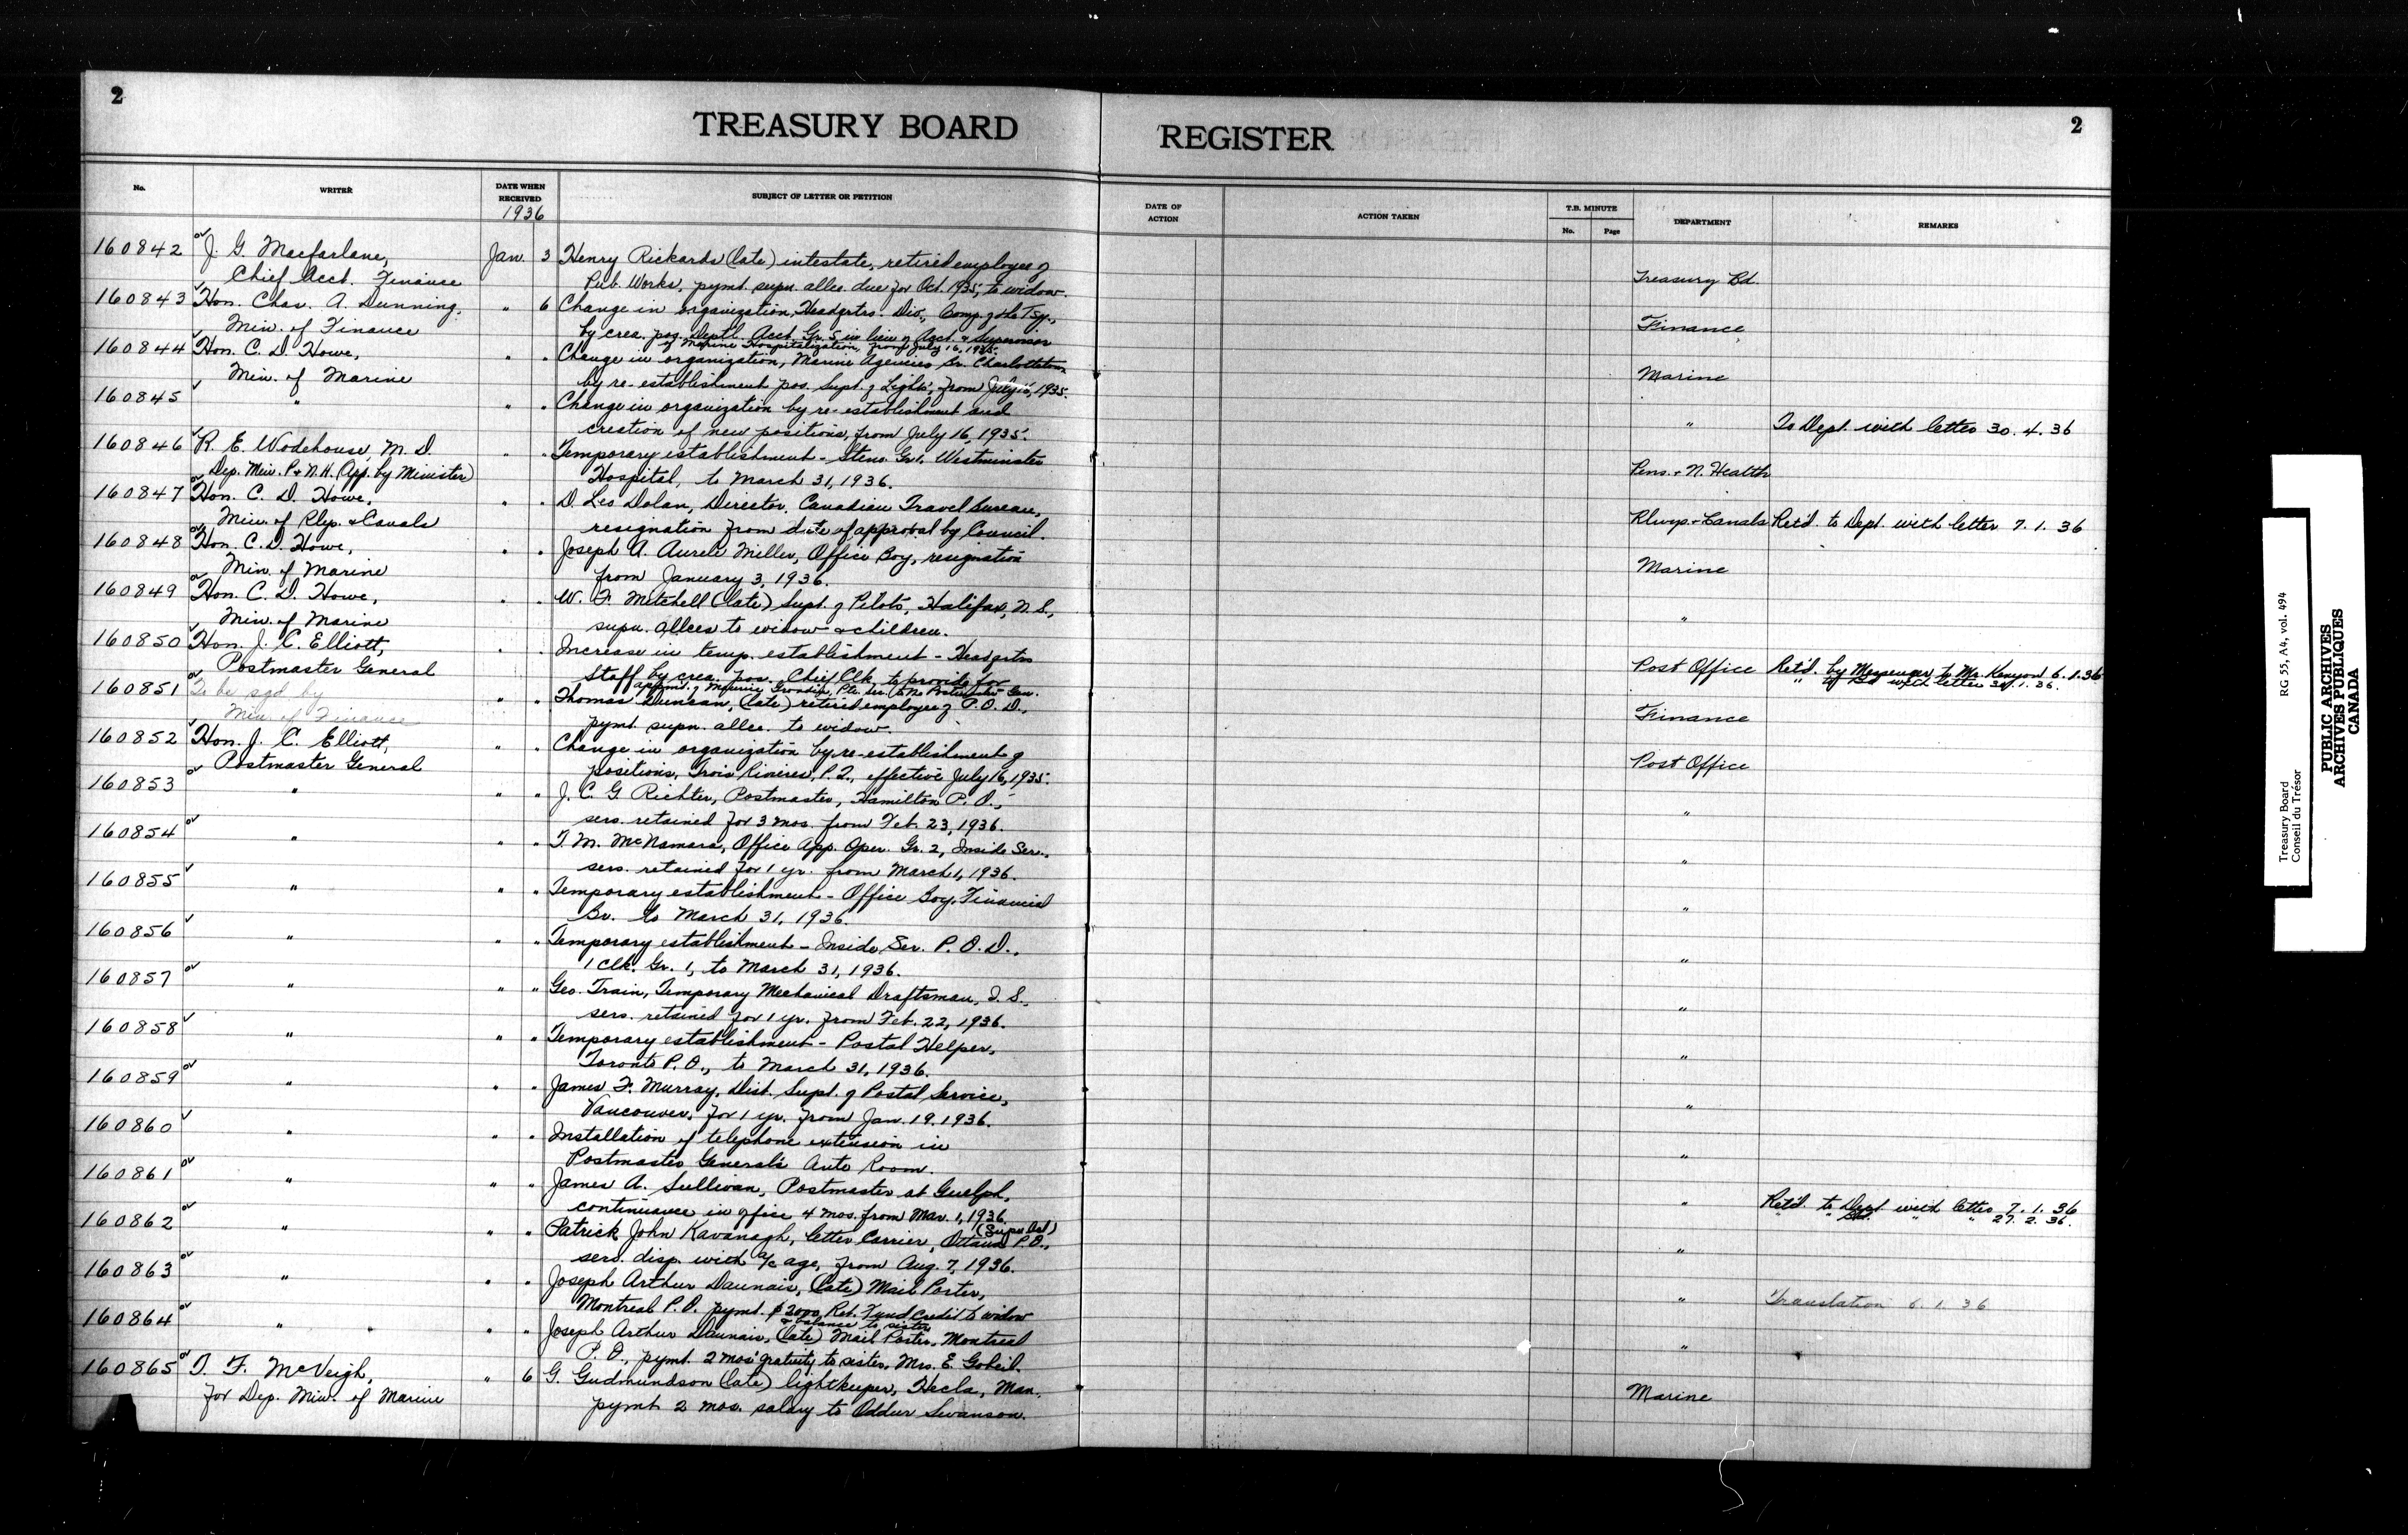 2
TREASURY BOARD REGISTER
2
No. WRITER DATE WHEN RECEIVED SUBJECT OF LETTER OR PETITION DATE OF ACTION ACTION TAKEN T.B. MINUTE No. Page DEPARTMENT REMARKS
1936
160842 J. G. Macfarlane, Jan. 3 Henry Rickards (late) intestate, retired employee of
Chief Acct. Finance Pub. Works, pymt. supn. allce. due for Oct. 1935, to widow. Treasury Bd.
160843 Hon. Chas. A. Dunning, " 6 Change in organization, Headqrtrs. Div., Comp. of the Tsy.,
Min. of Finance by crea. pos. Deptl. Acct. Gr. 5 in lieu of Acct. & Supervisor Finance
of Marine Hospitalization, from July 16, 1935.
160844 Hon. C. D. Howe, " " Change in organization, Marine Agencies Br. Charlottetown
Min. of Marine by re-establishment pos. Supt. of Lights, from July 16, 1935. Marine
160845 " " " Change in organization by re-establishment and
creation of new positions, from July 16, 1935. " To Dept. with letter 30.4.36
160846 R. E. Wodehouse, M.D. " " Temporary establishment - Steno. Gr. 1. Westminster
Dep. Min. P. & N.H. (App. by Minister) Hospital, to March 31, 1936. Pens. & N. Health
160847 Hon. C. D. Howe, " " D. Leo Dolan, Director, Canadian Travel Bureau,
Min. of Rlys. & Canals resignation from date of approval by Council. Rlwys. & Canals Ret'd. to Dept. with letter 7.1.36
160848 Hon. C. D. Howe, " " Joseph A. Aurele Miller, Office Boy, resignation
Min. of Marine from January 3, 1936. Marine
160849 Hon. C. D. Howe, " " W. F. Mitchell (late) Supt. of Pilots, Halifax, N.S.,
Min. of Marine supn. allces to widow & children. "
160850 Hon. J. C. Elliott, " " Increase in temp. establishment - Headqrtrs
Postmaster General Staff by crea. pos. Chief Clk. to provide for Post Office Ret'd. by Messenger to Mr. Kenyon 6.1.36
appmt. of Maurice Grondin, Pte. Sec. to the Postmaster Gen. " to Bd with letter 30.1.36.
160851 To be sgd. by " " Thomas Duncan, (late) retired employee of P.O.D.,
Min. of Finance pymt. supn. allce. to widow. Finance
160852 Hon. J. C. Elliott, " " Change in organization by re-establishment of
Postmaster General positions, Trois Rivieres, P.Q., effective July 16, 1935. Post Office
160853 " " " J. C. G. Richter, Postmaster, Hamilton P.O.,
sers. retained for 3 mos. from Feb. 23, 1936. "
160854 " " " T. M. McNamara, Office App. Oper. Gr. 2, Inside Ser.,
sers. retained for 1 yr. from March 1, 1936. "
160855 " " " Temporary establishment - Office Boy, Financial
Br. to March 31, 1936. "
160856 " " " Temporary establishment - Inside Ser. P.O.D.,
1 Clk. Gr. 1, to March 31, 1936. "
160857 " " " Geo. Train, Temporary Mechanical Draftsman, I.S.,
sers. retained for 1 yr. from Feb. 22, 1936. "
160858 " " " Temporary establishment - Postal Helper,
Toronto P.O., to March 31, 1936. "
160859 " " " James F. Murray, Dist. Supt. of Postal Service,
Vancouver, for 1 yr. from Jan. 19, 1936. "
160860 " " " Installation of telephone extension in
Postmaster General's Auto Room. "
160861 " " " James A. Sullivan, Postmaster at Guelph,
continuance in office 4 mos. from Mar. 1, 1936. " Ret'd. to Dept with letter 7.1.36
" " " " 27.2.36.
160862 " " " Patrick John Kavanagh, Letter Carrier, Ottawa P.O.,
sers. disp. with a/c age, from Aug. 7, 1936. "
160863 " " " Joseph Arthur Daunais, (late) Mail Porter,
Montreal P.O. pymt. $2000 Ret. Fund credit to widow " Translation 6.1.36
& balance to sister
160864 " " " Joseph Arthur Daunais, (late) Mail Porter, Montreal
P.O., pymt. 2 mos' gratuity to sister, Mrs. E. Gobeil. "
160865 T. F. McVeigh, " 6 G. Gudmundson (late) lightkeeper, Hecla, Man.
for Dep. Min. of Marine pymt. 2 mos. salary to Oddur Swanson. Marine
Treasury Board RG 55, A4, vol. 494
Conseil du Trésor
PUBLIC ARCHIVES
ARCHIVES PUBLIQUES
CANADA